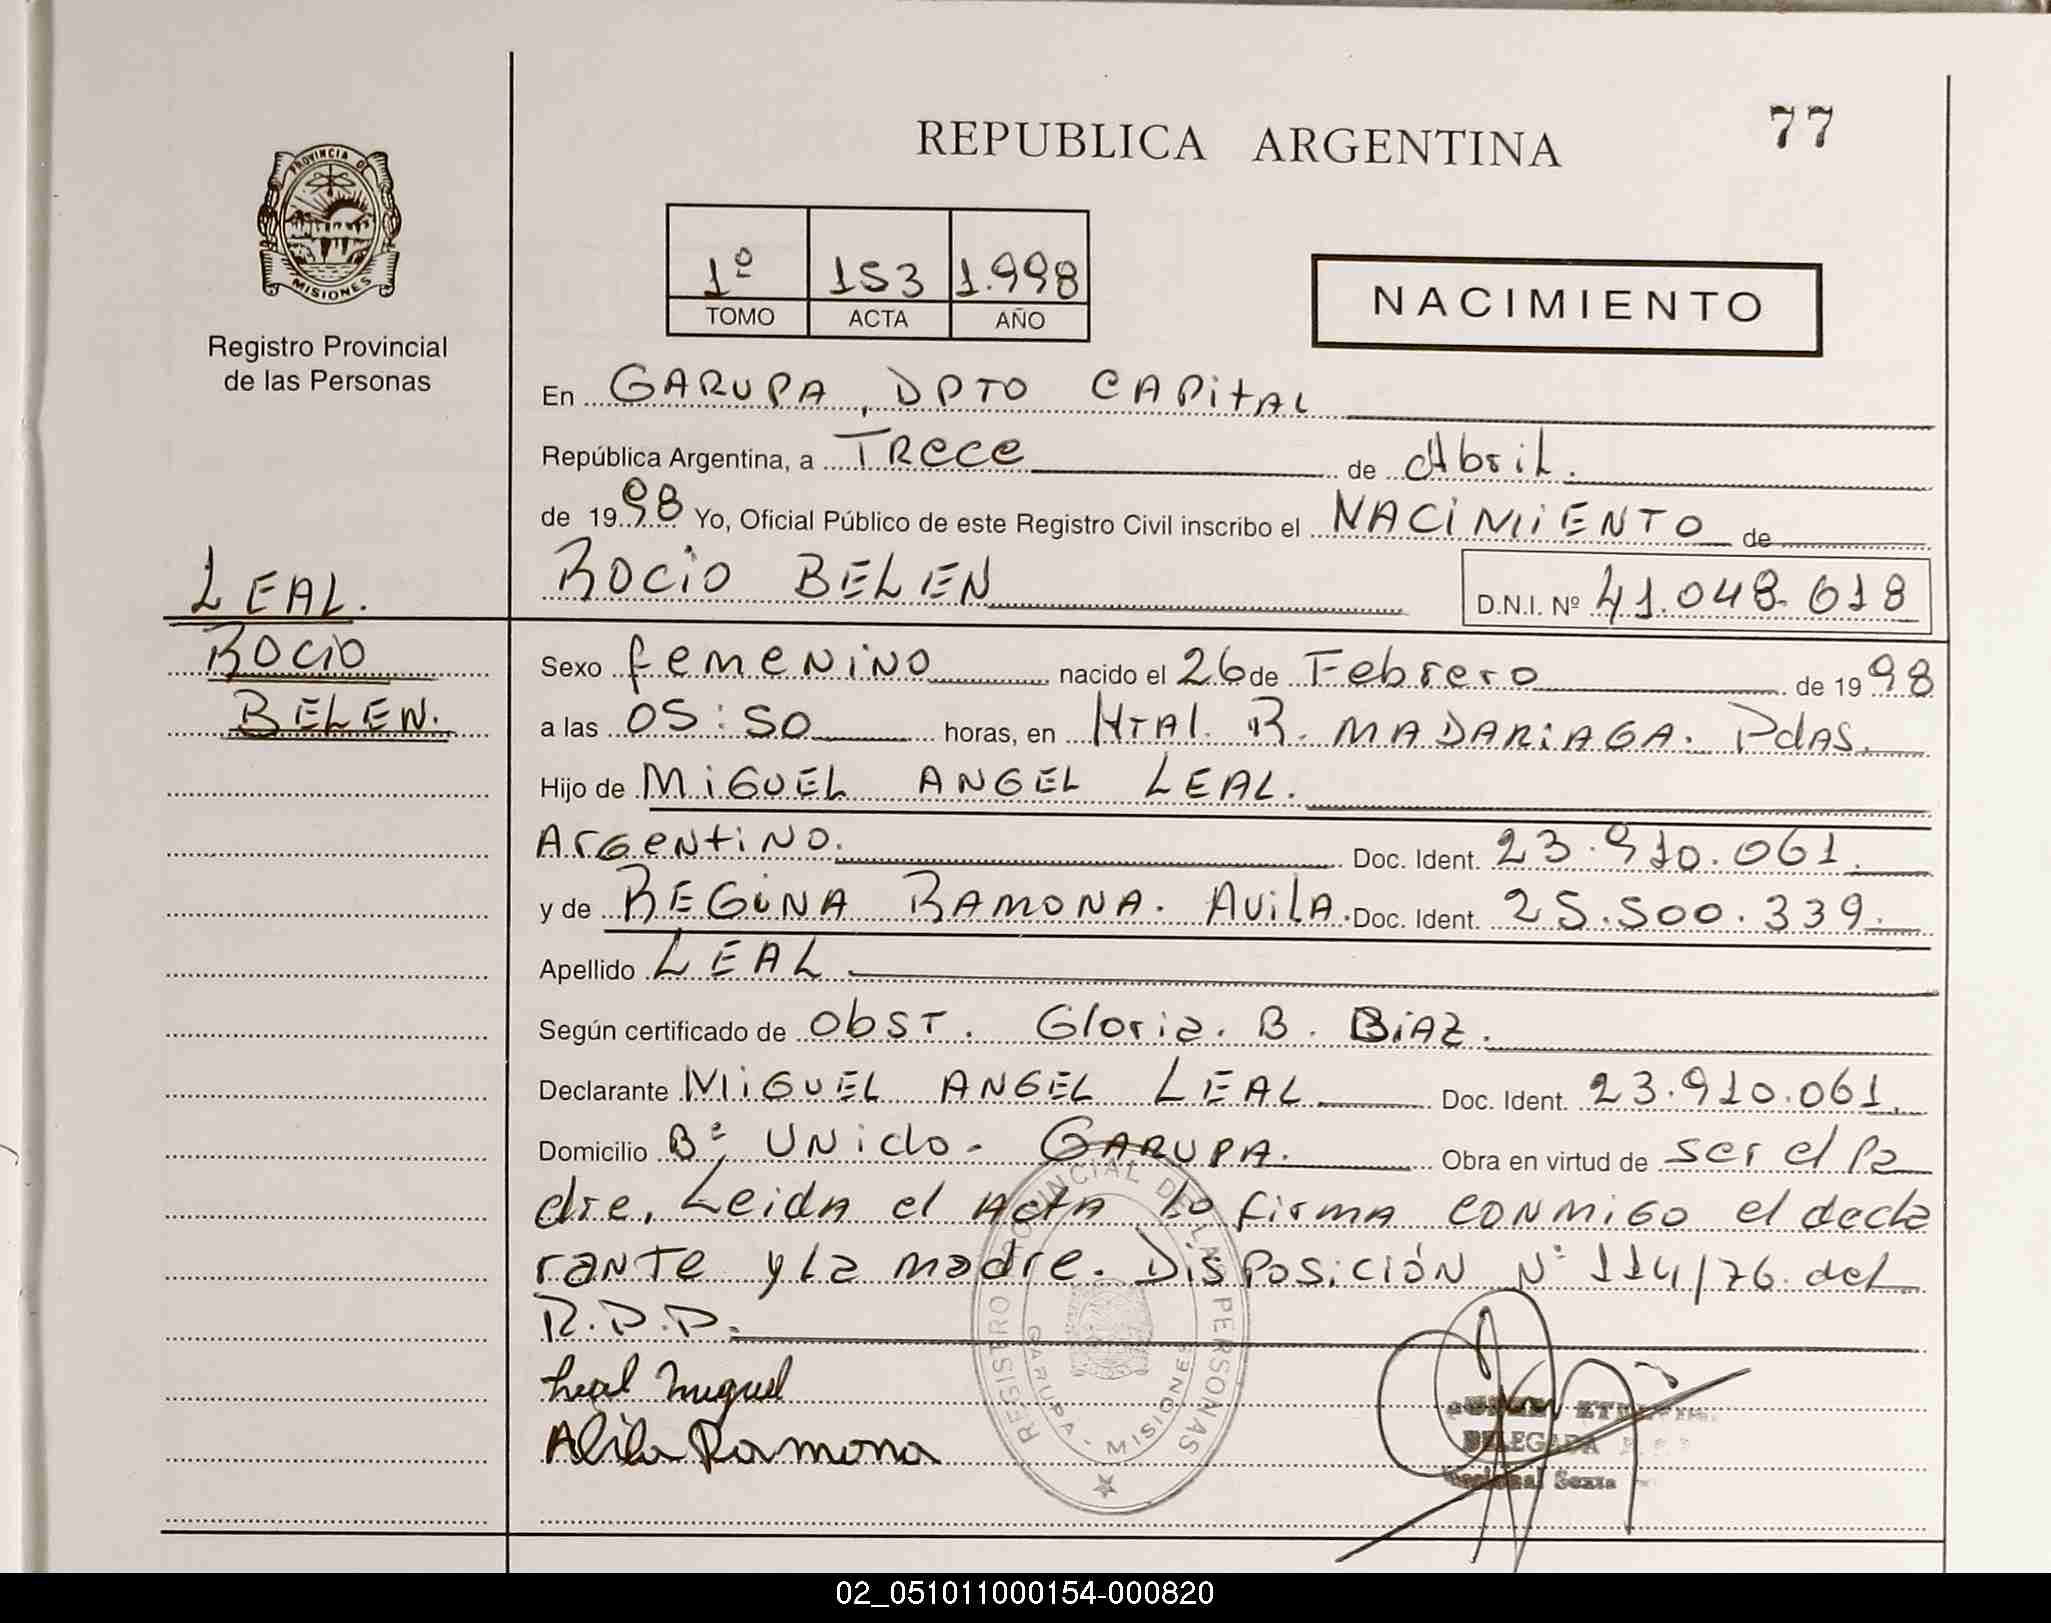 REPUBLICA ARGENTINA
77
PROVINCIA DE
MISIONES
Registro Provincial
de las Personas
1º 153 1.998
TOMO ACTA AÑO
NACIMIENTO
En GARUPA, DPTO CAPITAL
República Argentina, a TRECE de Abril.
de 1998 Yo, Oficial Público de este Registro Civil inscribo el NACIMIENTO de
ROCIO BELEN D.N.I. Nº 41.048.618
LEAL.
ROCIO
BELEN.
Sexo femenino nacido el 26 de Febrero de 1998
a las 05:50 horas, en Htal. R. MADARIAGA. Pdas.
Hijo de MIGUEL ANGEL LEAL.
Argentino. Doc. Ident. 23.910.061.
y de REGINA RAMONA. AVILA. Doc. Ident. 25.500.339.
Apellido LEAL
Según certificado de obst. Gloria. B. DIAZ.
Declarante MIGUEL ANGEL LEAL Doc. Ident. 23.910.061.
Domicilio Bº UNIDO - GARUPA. Obra en virtud de ser el pa
dre. Leida el Acta lo firma conmigo el decla
rante y la madre. Disposición Nº 114/76 del
R.P.P.
Leal Miguel
Avila Ramona
REGISTRO PROVINCIAL DE LAS PERSONAS
GARUPA - MISIONES
DELEGADA
Sexta
02_051011000154-000820